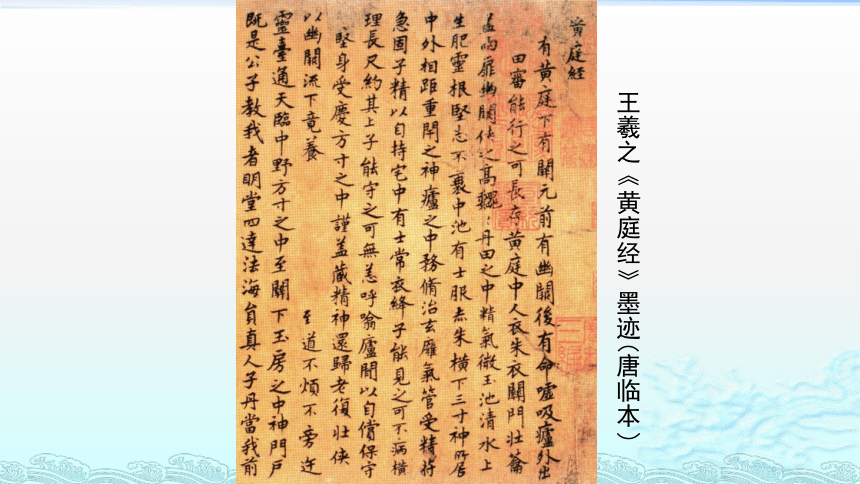 黄庭経
有黄庭下有關元前有幽闕後有命嘘吸廬外出
田審能行之可長存黄庭中人衣朱衣關門壯蘥
盖兩扉幽闕俠之高巍〻丹田之中精氣微玉池清水上
生肥靈根堅志不衰中池有士服赤朱橫下三寸神所居
中外相距重閇之神廬之中務脩治玄廱氣管受精符
急固子精以自持宅中有士常衣絳子能見之可不病橫
理長尺約其上子能守之可無恙呼噏廬間以自償保守
堅身受慶方寸之中謹盖藏精神還歸老復壯俠
以幽闕流下竟養 至道不煩不旁迕
靈臺通天臨中野方寸之中至關下玉房之中神門戶
既是公子教我者明堂四達法海員真人子丹當我前
王羲之《黄庭经》墨迹(唐临本)